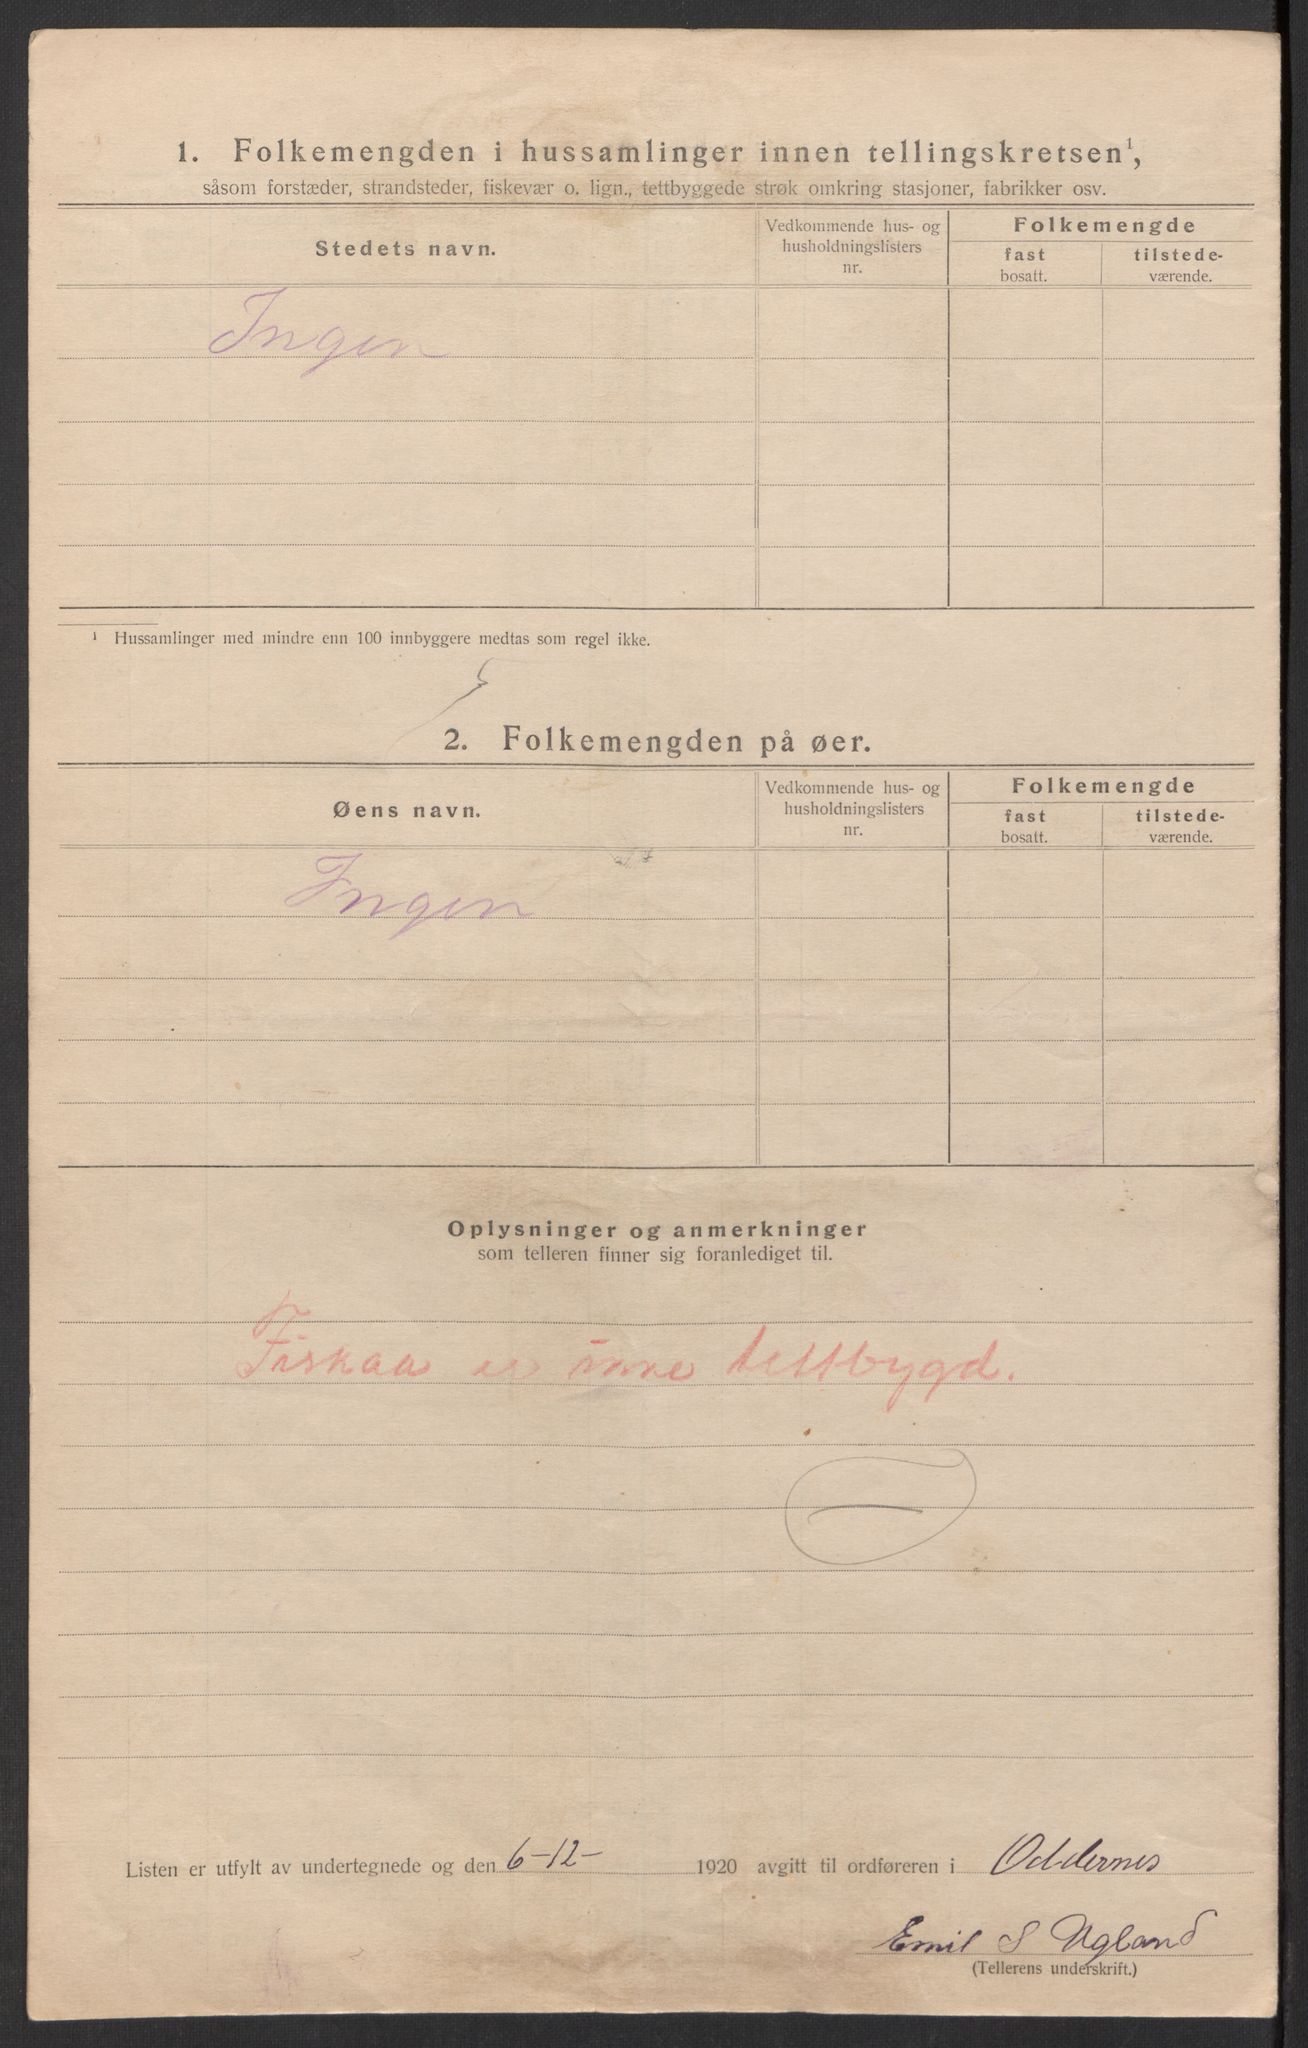 1. Folkemengden i hussamlinger innen tellingskretsen¹,
såsom forstæder, strandsteder, fiskevær o. lign., tettbyggede strøk omkring stasjoner, fabrikker osv.
Stedets navn.
Vedkommende hus- og
husholdningslisters
nr.
Folkemengde
fast
bosatt.
tilstede-
værende.
Ingen
¹ Hussamlinger med mindre enn 100 innbyggere medtas som regel ikke.
2. Folkemengden på øer.
Øens navn.
Vedkommende hus- og
husholdningslisters
nr.
Folkemengde
fast
bosatt.
tilstede-
værende.
Ingen
Oplysninger og anmerkninger
som telleren finner sig foranlediget til.
Fiskaa er tettbygd.
Listen er utfylt av undertegnede og den 6-12- 1920 avgitt til ordføreren i Oddernes
Emil S Ugland
(Tellerens underskrift.)